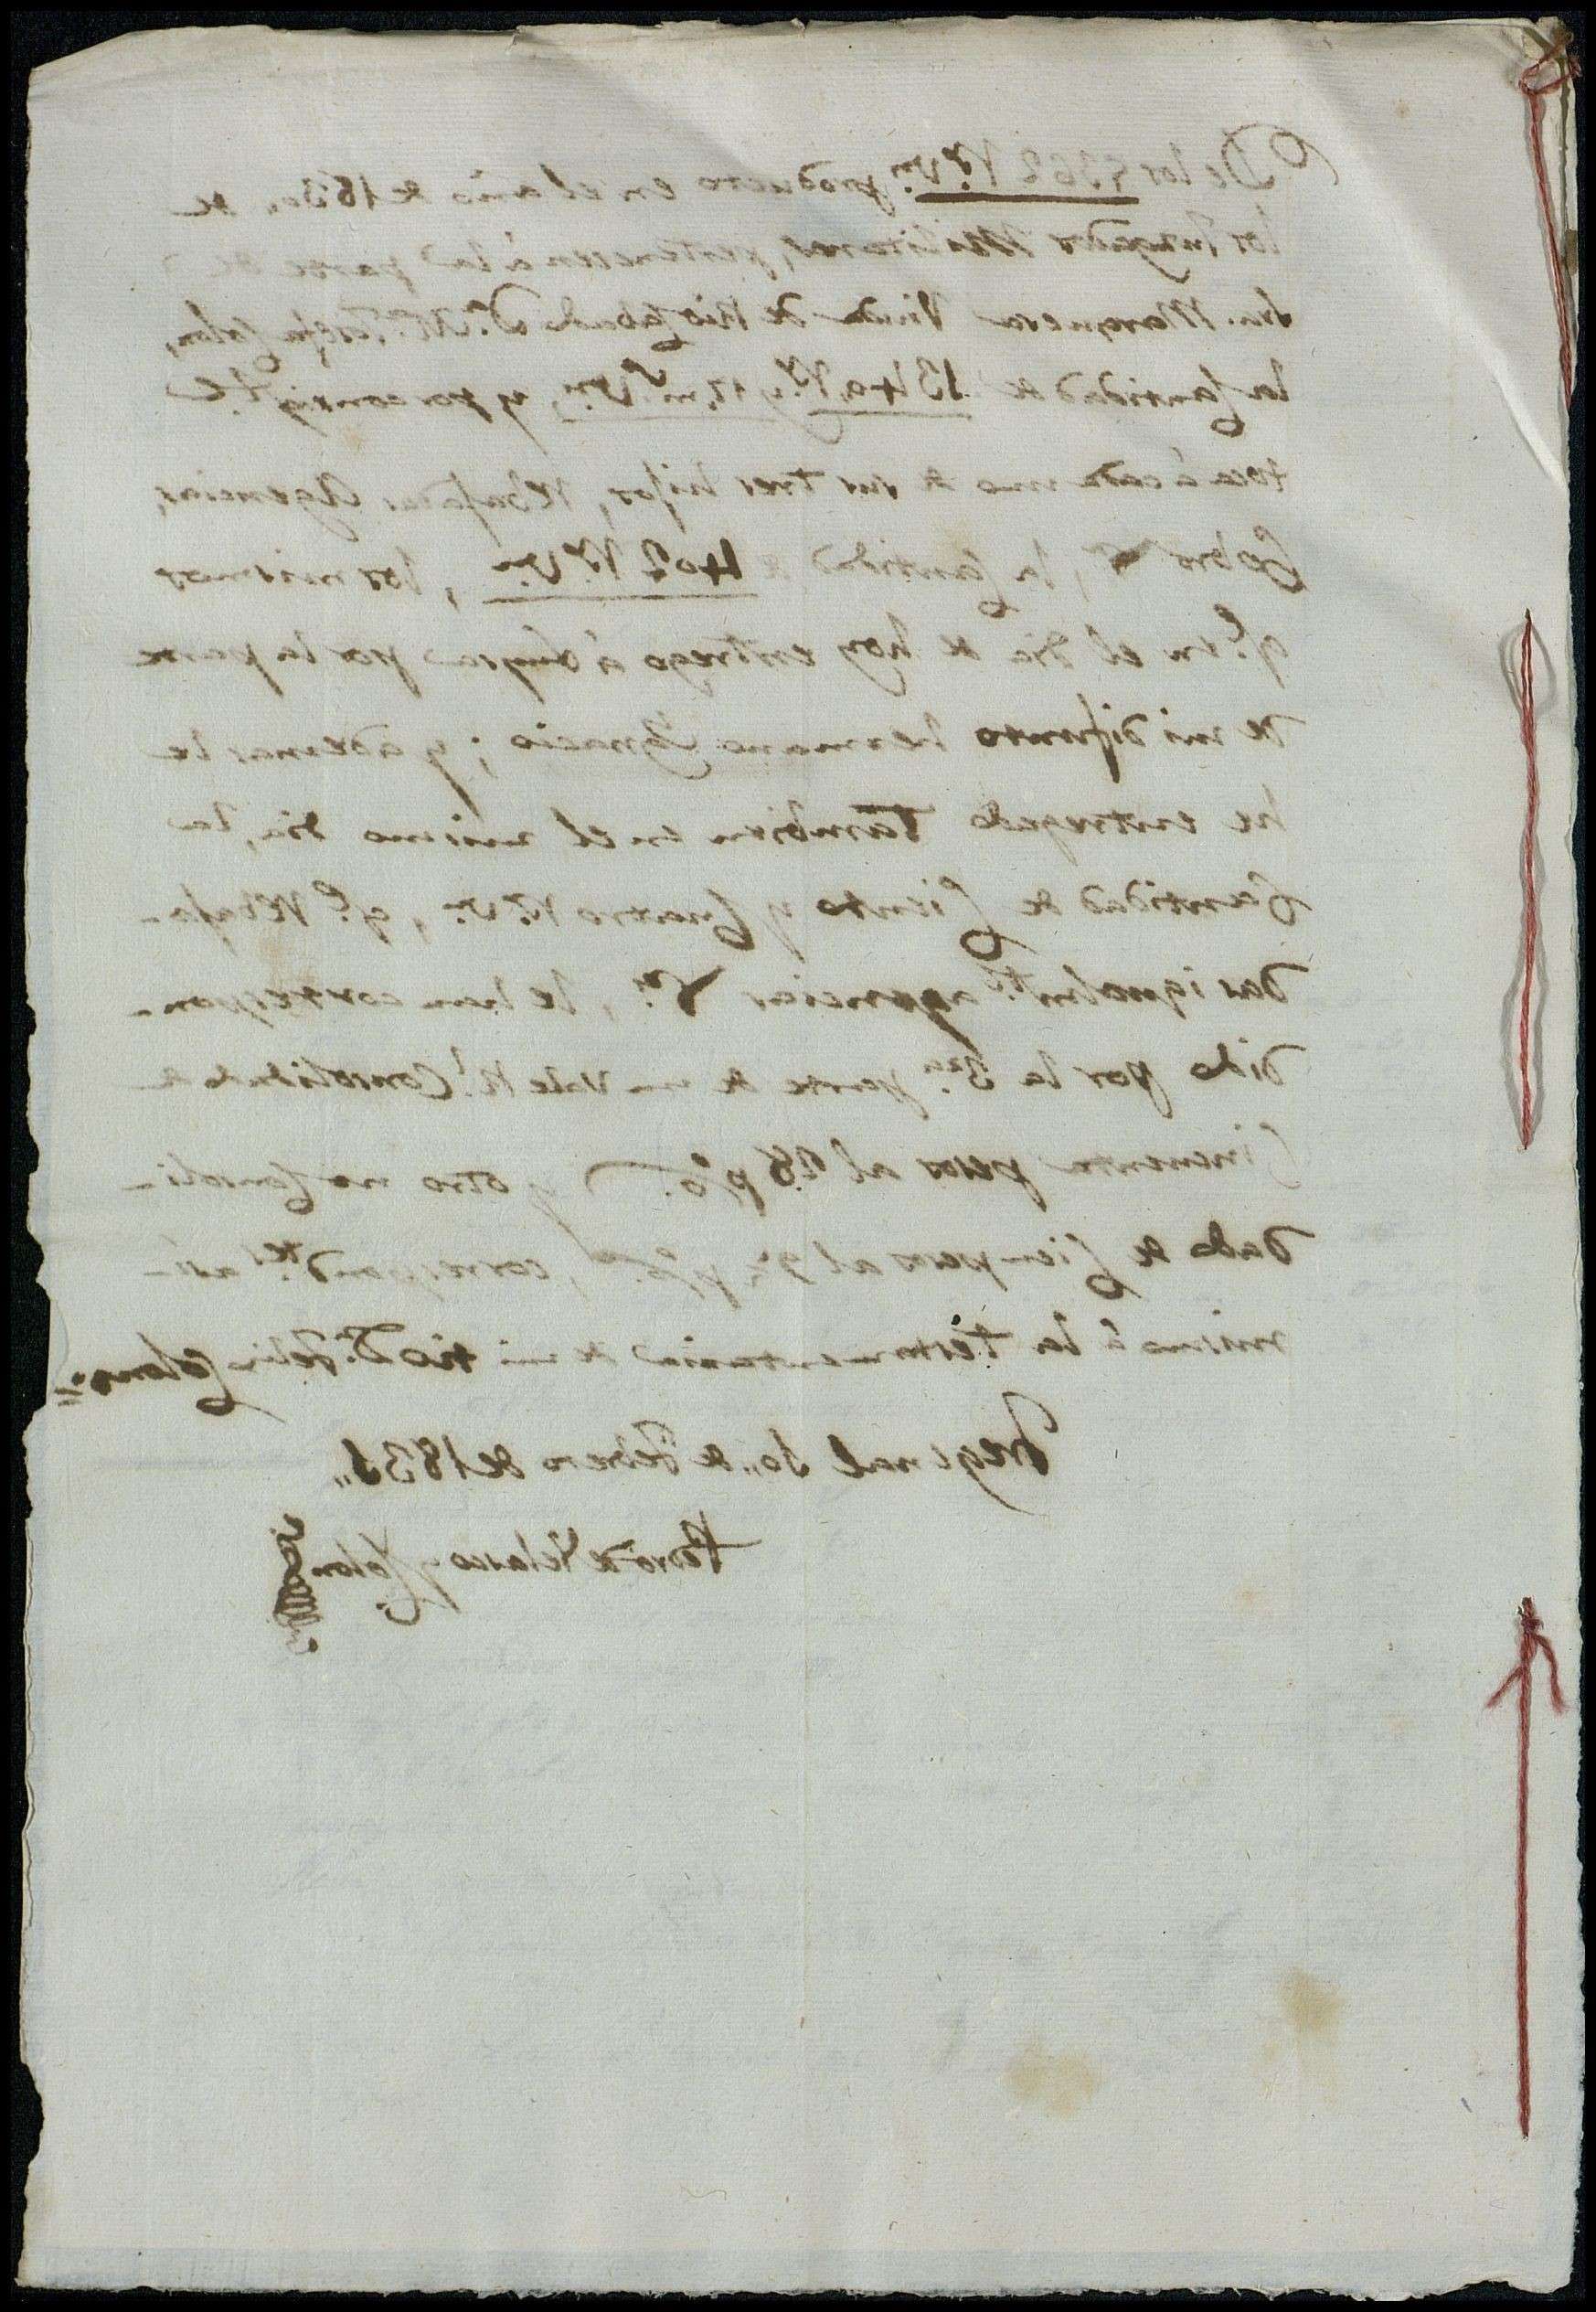 De los 5362 Rs. Vn. producto en el año de 1830, de
los Juzgados Militares, pertenecen á la parte de
Sra. Marquesa Viuda de Rio Cabado Da. Ma. Josefa Colon,
la Cantidad de 1340, Rs. y 17, ms. Vn., y por consigte.
toca á cada uno de sus tres hijos, rebajadas Agencias,
Cobro &, la Cantidad de 402 Rs. Vn., los mismos
qe. en el dia de hoy entrego á por la parte
de mi difunto hermano Ignacio; y ademas le
he entregado Tambien en el mismo dia, la
Cantidad de Ciento y Cuatro Rs. Vn., qe. rebaja-
das igualmte. agencias &a., le han correspon-
dido por la 3a. parte de un Vale Rl. Consolidado de
Cincuenta pesos al 28 p%. y otro no Consoli-
dado de Cien pesos al p%., correspondtes. asi-
mismo á la Testamentaria de mi tio Dn. Felix Colon =
Fregenal 10,, de Febrero de 1831,,
Pedro de Velasco y Colon